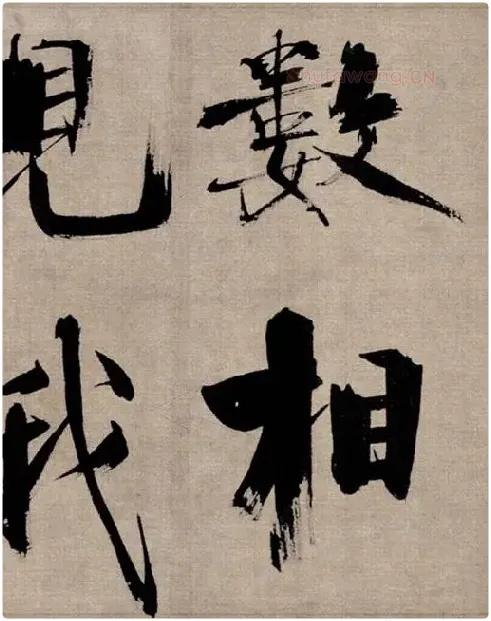 數相
見我
Shufawang.CN